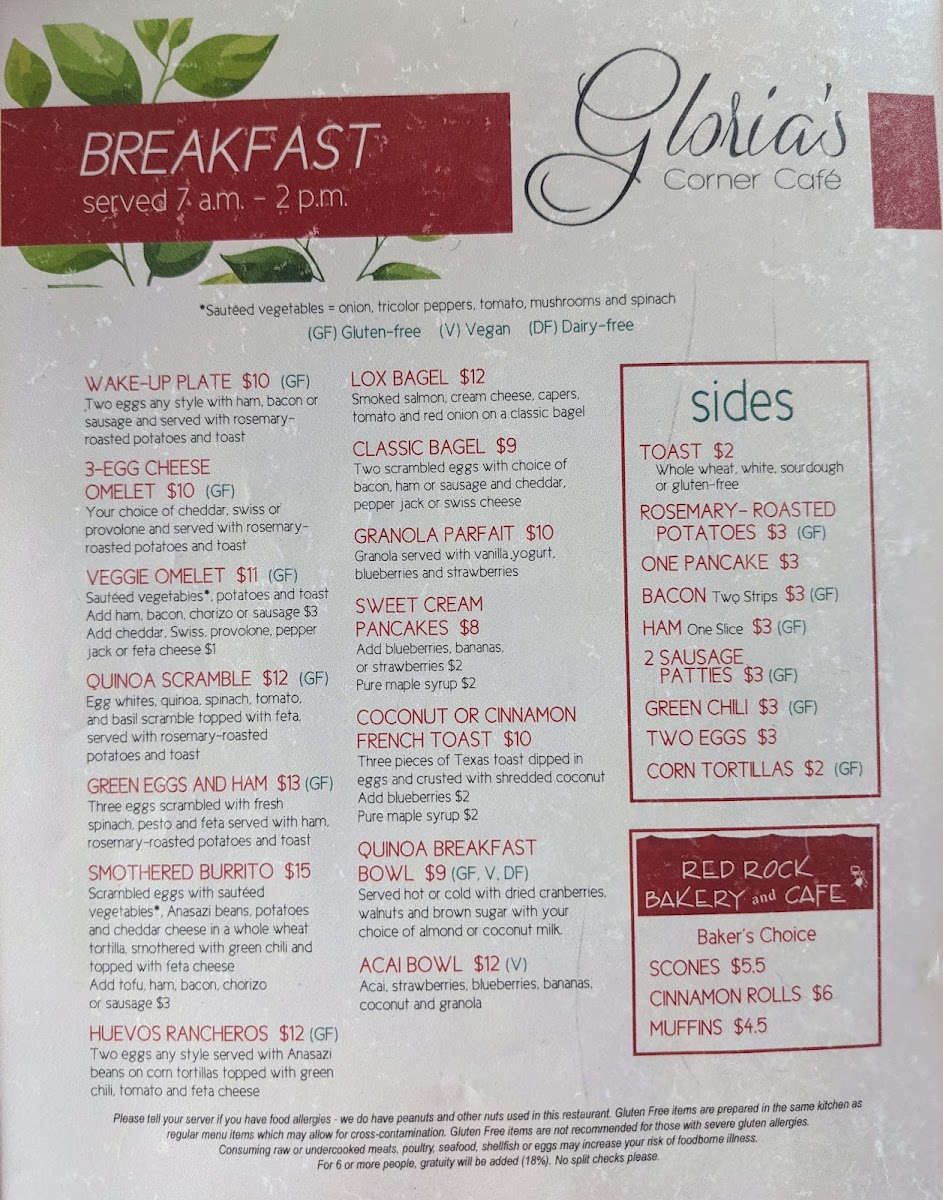 BREAKFAST
served 7 a.m. - 2 p.m.
Gloria's
Corner Café
*Sautéed vegetables = onion, tricolor peppers, tomato, mushrooms and spinach
(GF) Gluten-free (V) Vegan (DF) Dairy-free
WAKE-UP PLATE $10 (GF)
Two eggs any style with ham, bacon or
sausage and served with rosemary-
roasted potatoes and toast
3-EGG CHEESE
OMELET $10 (GF)
Your choice of cheddar, swiss or
provolone and served with rosemary-
roasted potatoes and toast
VEGGIE OMELET $11 (GF)
Sautéed vegetables*, potatoes and toast
Add ham, bacon, chorizo or sausage $3
Add cheddar, Swiss, provolone, pepper
jack or feta cheese $1
QUINOA SCRAMBLE $12 (GF)
Egg whites, quinoa, spinach, tomato,
and basil scramble topped with feta,
served with rosemary-roasted
potatoes and toast
GREEN EGGS AND HAM $13 (GF)
Three eggs scrambled with fresh
spinach, pesto and feta served with ham,
rosemary-roasted potatoes and toast
SMOTHERED BURRITO $15
Scrambled eggs with sautéed
vegetables*, Anasazi beans, potatoes
and cheddar cheese in a whole wheat
tortilla, smothered with green chili and
topped with feta cheese
Add tofu, ham, bacon, chorizo
or sausage $3
HUEVOS RANCHEROS $12 (GF)
Two eggs any style served with Anasazi
beans on corn tortillas topped with green
chili, tomato and feta cheese
LOX BAGEL $12
Smoked salmon, cream cheese, capers,
tomato and red onion on a classic bagel
CLASSIC BAGEL $9
Two scrambled eggs with choice of
bacon, ham or sausage and cheddar,
pepper jack or swiss cheese
GRANOLA PARFAIT $10
Granola served with vanilla yogurt,
blueberries and strawberries
SWEET CREAM
PANCAKES $8
Add blueberries, bananas,
or strawberries $2
Pure maple syrup $2
COCONUT OR CINNAMON
FRENCH TOAST $10
Three pieces of Texas toast dipped in
eggs and crusted with shredded coconut
Add blueberries $2
Pure maple syrup $2
QUINOA BREAKFAST
BOWL $9 (GF, V, DF)
Served hot or cold with dried cranberries,
walnuts and brown sugar with your
choice of almond or coconut milk.
ACAI BOWL $12 (V)
Acai, strawberries, blueberries, bananas,
coconut and granola
sides
TOAST $2
Whole wheat, white, sourdough
or gluten-free
ROSEMARY- ROASTED
POTATOES $3 (GF)
ONE PANCAKE $3
BACON Two Strips $3 (GF)
HAM One Slice $3 (GF)
2 SAUSAGE
PATTIES $3 (GF)
GREEN CHILI $3 (GF)
TWO EGGS $3
CORN TORTILLAS $2 (GF)
RED ROCK
BAKERY and CAFE
Baker's Choice
SCONES $5.5
CINNAMON ROLLS $6
MUFFINS $4.5
Please tell your server if you have food allergies - we do have peanuts and other nuts used in this restaurant. Gluten Free items are prepared in the same kitchen as
regular menu items which may allow for cross-contamination. Gluten Free items are not recommended for those with severe gluten allergies.
Consuming raw or undercooked meats, poultry, seafood, shellfish or eggs may increase your risk of foodborne illness.
For 6 or more people, gratuity will be added (18%). No split checks please.